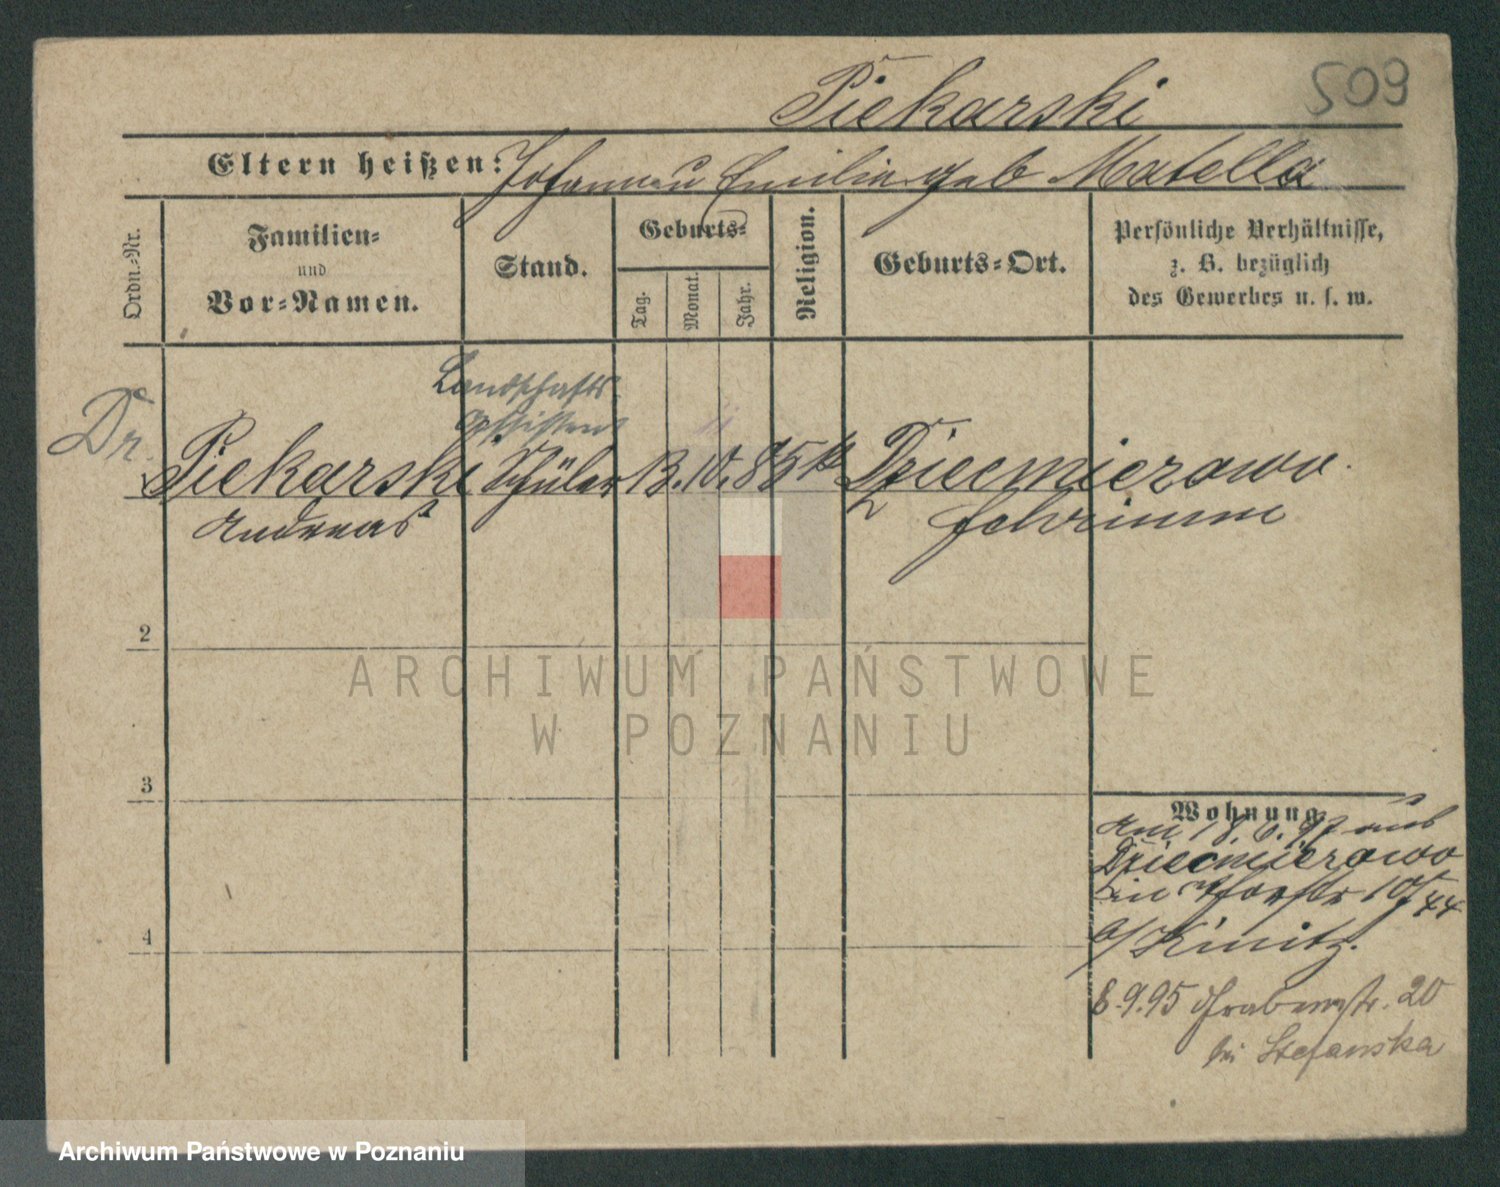 509
Piekarski
Eltern heißen: Johann u Emilie geb Matella
Ordn.-Nr.
Familien-
und
Vor-Namen.
Stand.
Geburts-
Tag.
Monat.
Jahr.
Religion.
Geburts-Ort.
Persönliche Verhältnisse,
z. B. bezüglich
des Gewerbes u. s. w.
Landschafts
Assistent
11
Dr.
Piekarski Schüler 13. 10. 85 k Dziecmierowo
Andreas Schrimm
2
3
4
Wohnung.
Am 18. 6. 97 aus
Dziecmierowo
in 10/44
b/ Kinitz.
8.9.95 Grabenstr. 20
bei Stefanska
ARCHIWUM PAŃSTWOWE
W POZNANIU
Archiwum Państwowe w Poznaniu